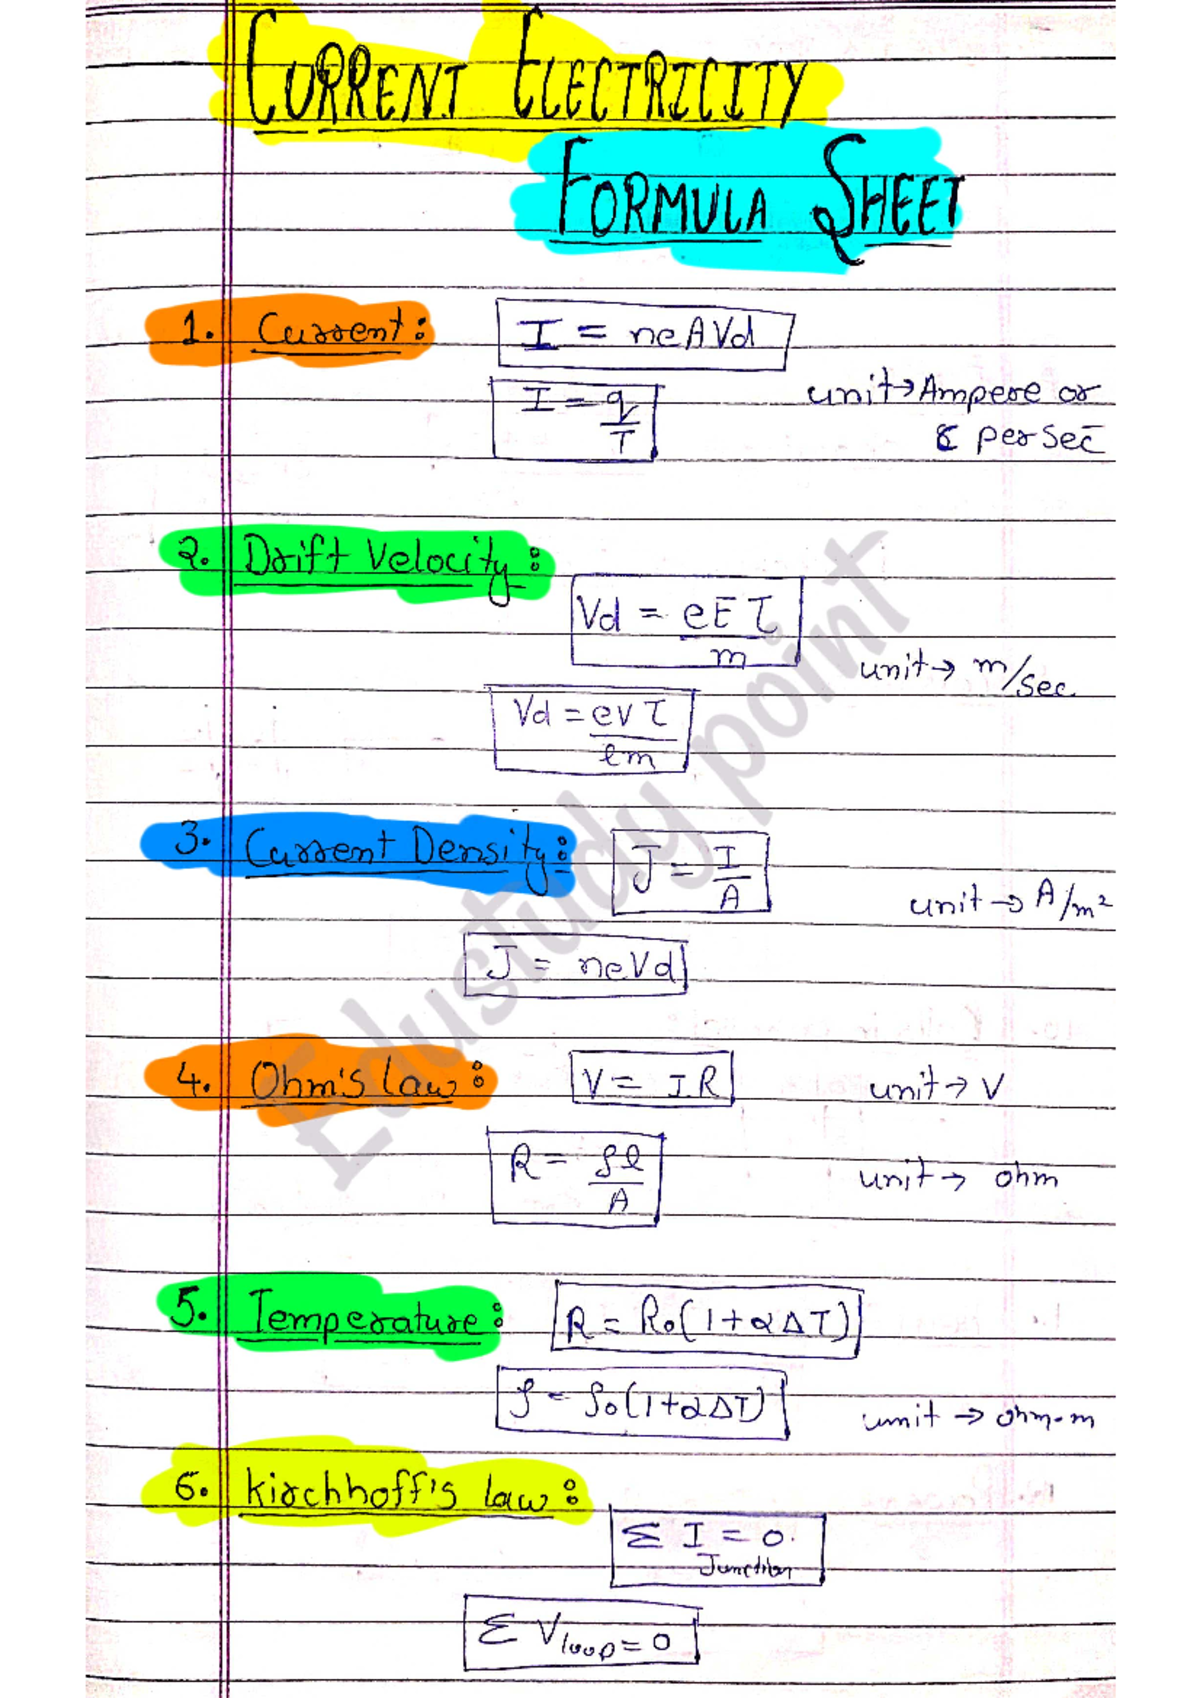 CURRENT ELECTRICITY
FORMULA SHEET
1. Current: I = neAVd
I = q/T
unit→Ampere or
C per sec
2. Drift Velocity:
Vd = eEτ/m
unit→ m/sec
Vd = evτ/lm
3. Current Density: J = I/A
unit→ A/m²
J = neVd
4. Ohm's law: V = IR unit→ V
R = ρl/A unit→ ohm
5. Temperature: R = R₀(1+α∆T)
ρ = ρ₀(1+α∆T) unit → ohm.m
6. Kirchhoff's law:
Σ I = 0.
Junction
Σ Vloop = 0
Edustudy point